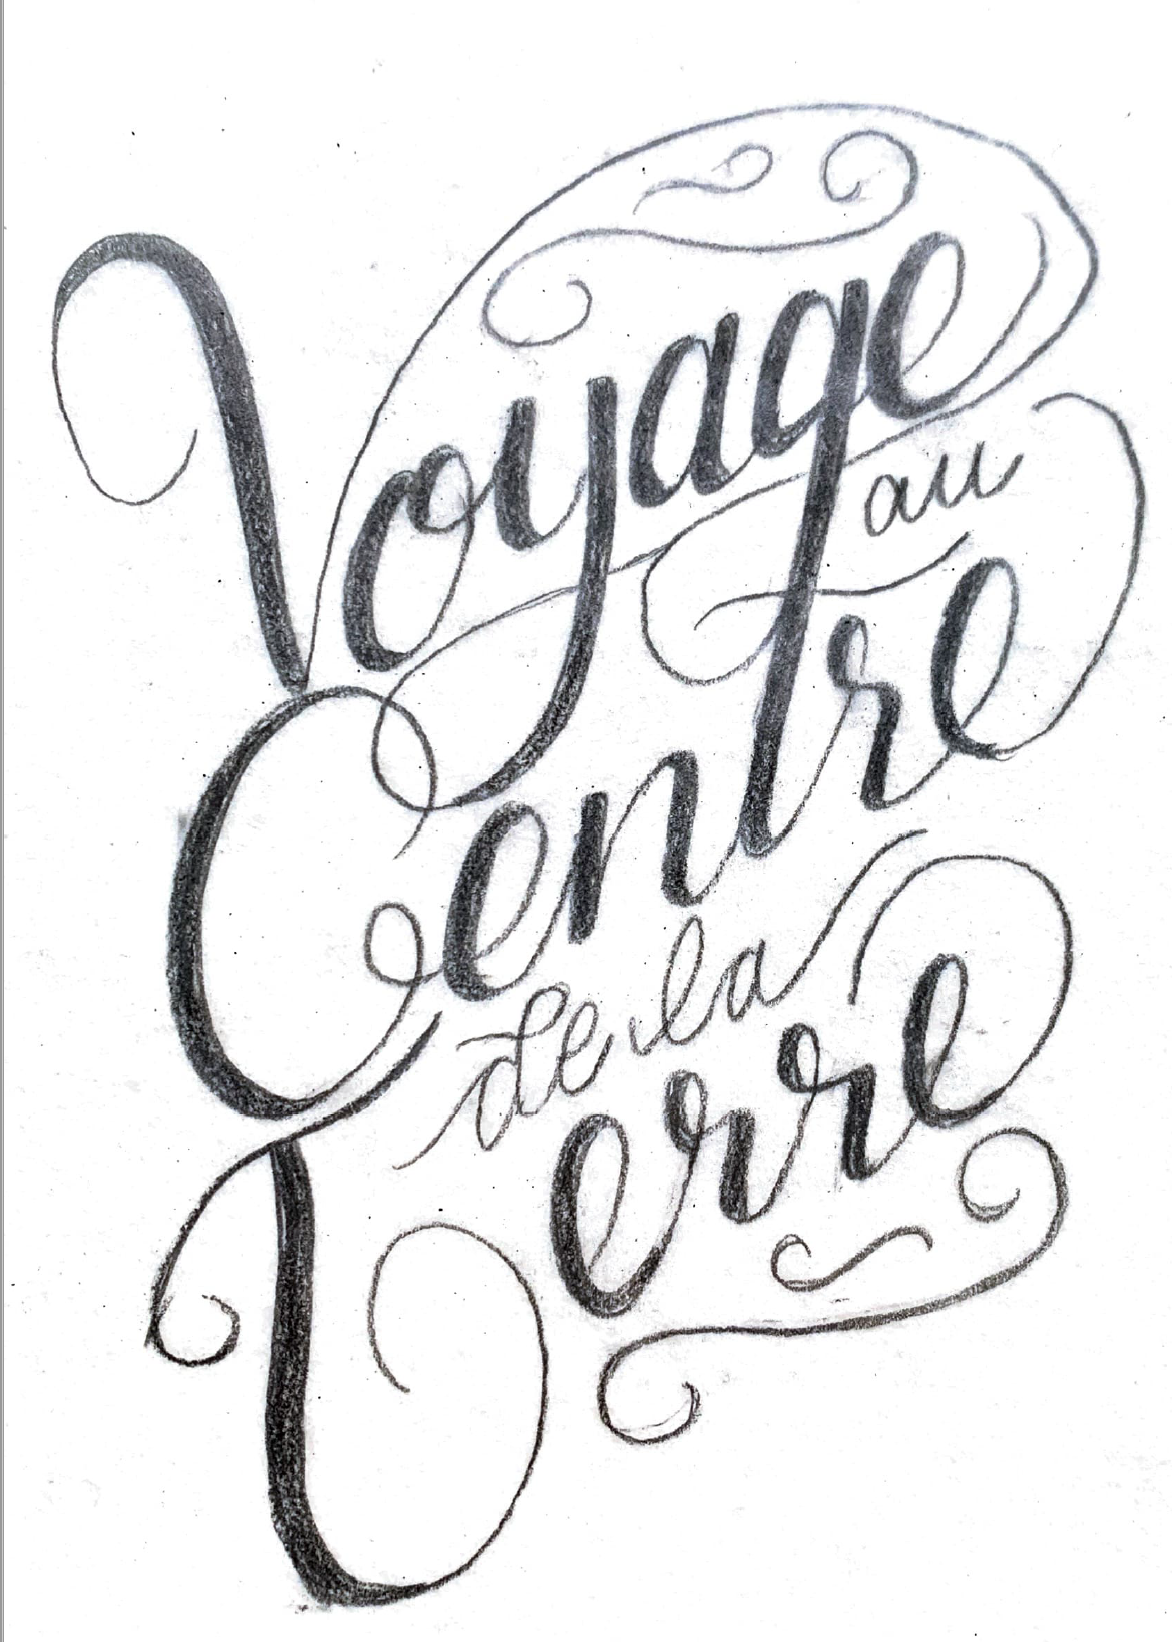 Voyage
au
Centre
de la
Terre